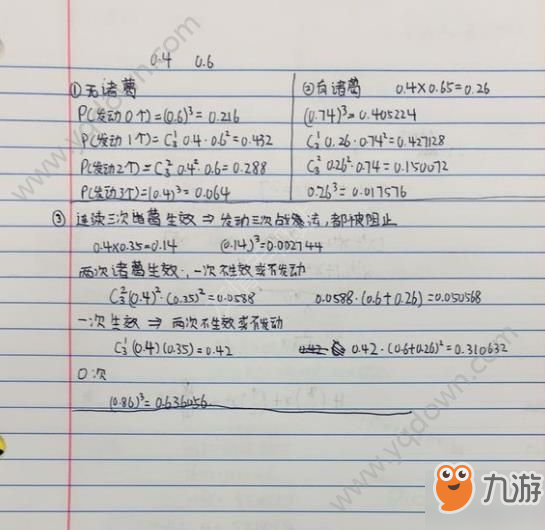 0.4 0.6
①无诸葛
P(发动0个)=(0.6)³=0.216
P(发动1个)=C₃¹ 0.4·0.6²=0.432
P(发动2个)=C₃² 0.4²·0.6=0.288
P(发动3个)=(0.4)³=0.064
②有诸葛 0.4×0.65=0.26
(0.74)³=0.405224
C₃¹ 0.26·0.74²=0.427128
C₃² 0.26²·0.74=0.150072
0.26³=0.017576
③ 连续三次诸葛生效⇒发动三次战法,都被阻止
0.4×0.35=0.14 (0.14)³=0.002744
两次诸葛生效,一次不生效或不发动
C₃²(0.4)²·(0.35)²=0.0588 0.0588·(0.6+0.26)=0.050568
一次生效⇒两次不生效或不发动
C₃¹(0.4)(0.35)=0.42 0.42 0.42·(0.6+0.26)²=0.310632
0次
(0.86)³=0.636056
www.yqdown.com
www.yqdown.com
九游